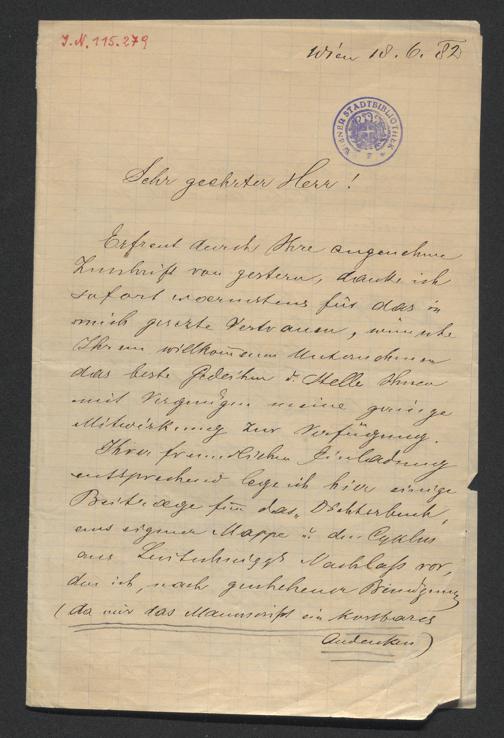 J. N. 115.279
Wien 18. 6. 82
WIENER STADTBIBLIOTHEK
Sehr geehrter Herr!
Erfreut durch Ihre angenehme
Zuschrift von gestern, danke ich
sofort waermstens für das in
mich gesezte Vertrauen, wünsche
Ihrem willkom̄enen Unternehmen
das beste Gedeihen u. stelle Ihnen
mit Vergnügen meine geringe
Mitwirkung zur Verfügung.
Ihrer freundlichen Einladung
entsprechend lege ich hier einige
Beitraege für das „Dichterbuch"
aus eigener Mappe u. den Cyklus
aus Leitschnigg's Nachlaß vor,
den ich, nach geschehener Benüzung
(da mir das Manuscript ein kostbares
Andenken)